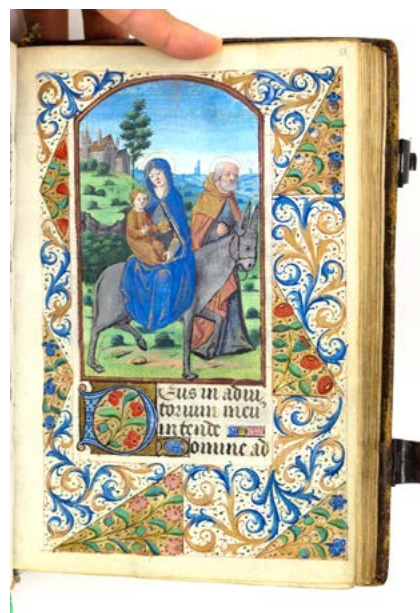 Deus in adiu
torium meu
intende
Domine ad